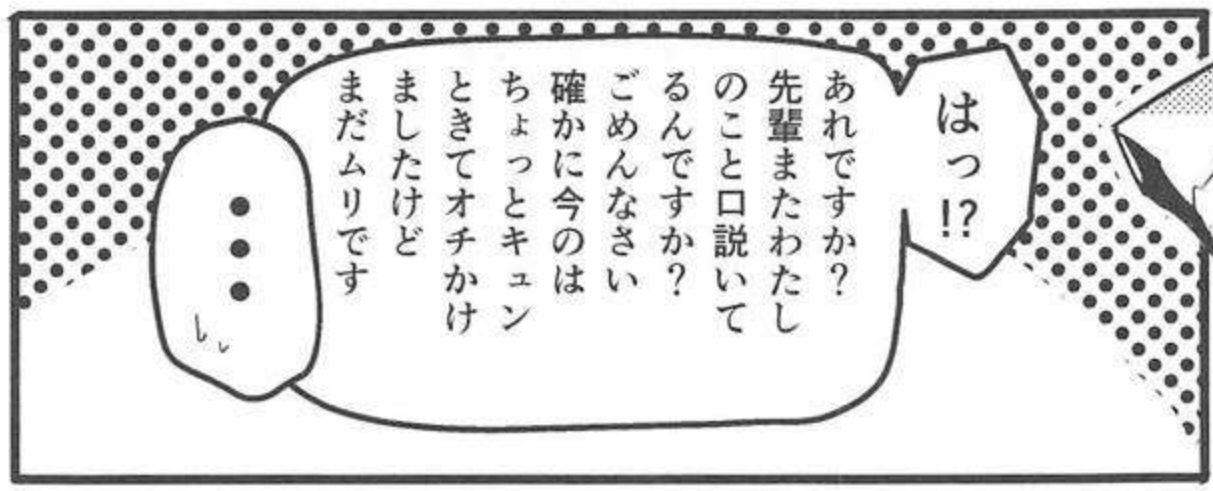 はっ!?
あれですか?
先輩またわたし
のこと口説いて
るんですか?
ごめんなさい
確かに今のは
ちょっとキュン
ときてオチかけ
ましたけど
まだムリです
・・・